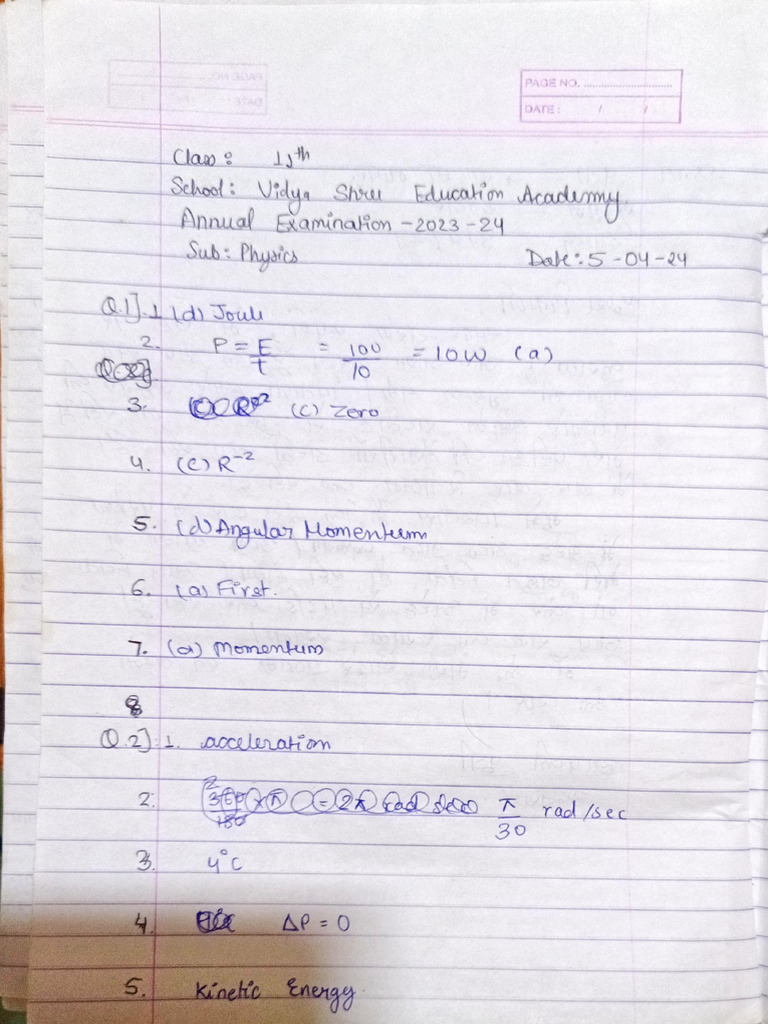 PAGE NO.
DATE: / /
Class: 11th
School: Vidya Shree Education Academy
Annual Examination - 2023 - 24
Sub: Physics Date: 5 - 04 - 24
Q.1]. 1 (d) Joule
2. P = E/t = 100/10 = 10W (a)
3. (C) Zero
4. (C) R⁻²
5. (d) Angular Momentum
6. (a) First.
7. (a) Momentum
8
Q.2]. 1. acceleration
2. π/30 rad/sec
3. 4°C
4. ΔP = 0
5. Kinetic Energy.